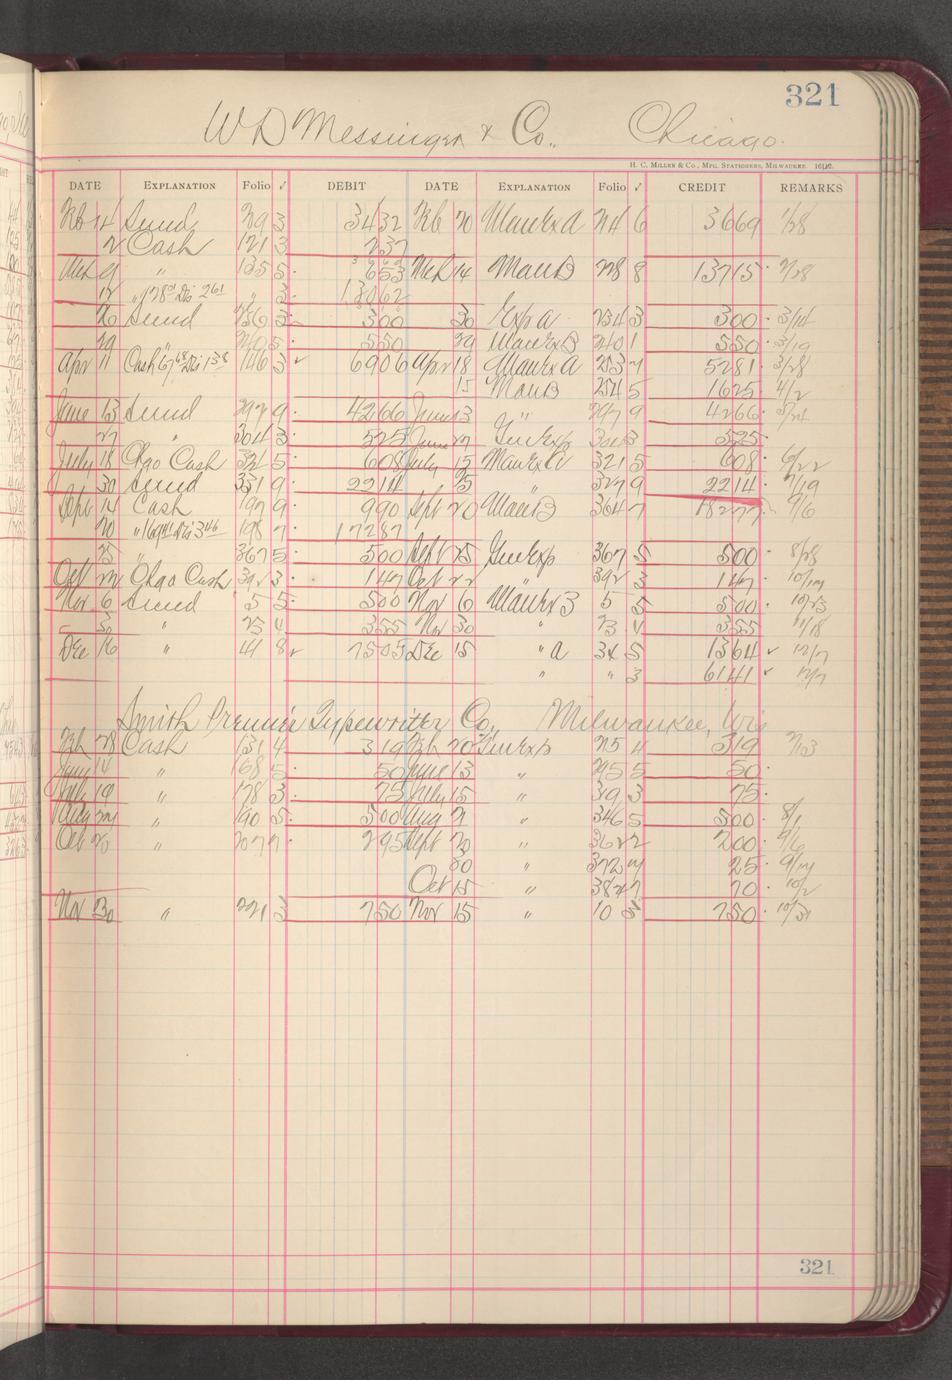 321
W D Messinger & Co., Chicago.
H. C. Miller & Co., Mfg. Stationers, Milwaukee.
DATE EXPLANATION Folio ✓ DEBIT DATE EXPLANATION Folio ✓ CREDIT REMARKS
Feb 14 Sund 293 3432 Feb 20 ManExA 2146 3669 1/28
2 Cash 1213 237
Mch 9 " 1355 653 Mch 14 ManB 2288 13715 2/28
12 " 3 13062
26 Sund 2363 300 30 Exp a 2343 300 3/14
29 2405 550 29 ManExB 2401 550 3/19
Apr 11 Cash 1463 ✓ 6906 Apr 18 ManExA 2537 5281 3/28
15 ManB 2545 1625 4/2
June 13 Sund 2929 4266 June 13 " 2929 4266 5/24
27 " 3043 525 June 27 GenExp 3043 525
July 18 Chgo Cash 5 608 July 15 ManExA 3215 608 6/22
30 Sund 3319 2214 25 " 3279 2214 7/19
Sept 14 Cash 1979 990 Sept 20 ManB 3647 18277 9/6
20 1987 17287
25 " 3675 500 Sept 25 GenExp 3675 500 8/28
Oct 22 Chgo Cash 3923 147 Oct 22 " 3923 147
Nov 6 Sund 5 5 500 Nov 6 ManExB 5 5 500 10/23
30 " 23 4 355 Nov 30 " 23 4 355 11/18
Dec 16 " 41 8 ✓ 7505 Dec 15 " a 34 5 1364 ✓ 12/7
" " 3 6141 ✓ 12/7
Smith Premier Typewriter Co, Milwaukee, Wis
Feb 28 Cash 1314 319 Feb 20 GenExp 2154 319 2/13
June 14 " 1685 50 June 13 " 55 50
July 19 " 1783 75 July 15 " 393 75
Aug " 1905 500 Aug 21 " 3465 500 8/1
Oct 20 " 2077 295 Sept 20 " 3622 200 9/6
30 " 372 25
Oct 15 " 70 10/2
Nov 30 " 2213 750 Nov 15 " 10 750 10/31
321